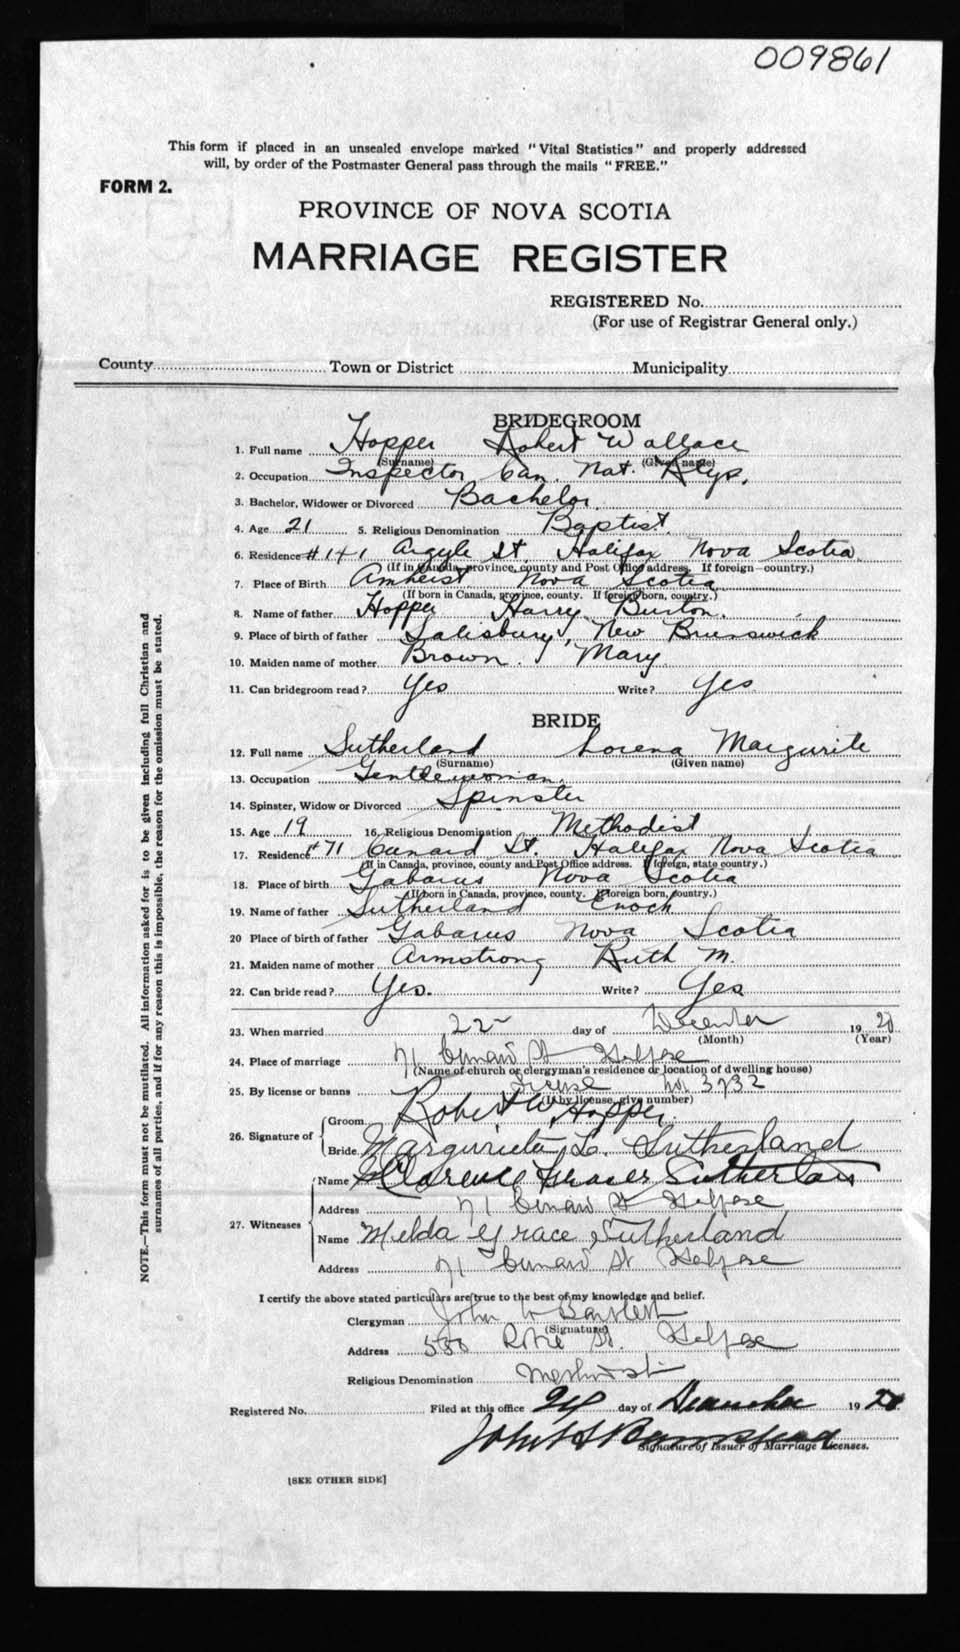 009861
This form if placed in an unsealed envelope marked "Vital Statistics" and properly addressed
will, by order of the Postmaster General pass through the mails "FREE."
FORM 2.
PROVINCE OF NOVA SCOTIA
MARRIAGE REGISTER
REGISTERED No.
(For use of Registrar General only.)
County Town or District Municipality
BRIDEGROOM
1. Full name Hopper Robert Wallace
(Surname) (Given name)
2. Occupation Inspector Can. Nat. Rlys.
3. Bachelor, Widower or Divorced Bachelor
4. Age 21 5. Religious Denomination Baptist
6. Residence #141 Argyle St. Halifax Nova Scotia
(If in Canada, province, county and Post Office address. If foreign—country.)
7. Place of Birth Amherst Nova Scotia
(If born in Canada, province, county. If foreign born, country.)
8. Name of father Hopper Harry Burton.
9. Place of birth of father Salisbury, New Brunswick
10. Maiden name of mother Brown. Mary
11. Can bridegroom read? Yes Write? Yes
BRIDE
12. Full name Sutherland Lorena Margurite
(Surname) (Given name)
13. Occupation Gentlewoman.
14. Spinster, Widow or Divorced Spinster
15. Age 19 16. Religious Denomination Methodist
17. Residence #71 Cunard St. Halifax Nova Scotia
(If in Canada, province, county and Post Office address. If foreign, state country.)
18. Place of birth Gabarus Nova Scotia
(If born in Canada, province, county. If foreign born, country.)
19. Name of father Sutherland Enoch
20 Place of birth of father Gabarus Nova Scotia
21. Maiden name of mother Armstrong Ruth M.
22. Can bride read? Yes. Write? Yes
23. When married 22 day of December 1920
(Month) (Year)
24. Place of marriage 71 Cunard St Halifax
(Name of church or clergyman's residence or location of dwelling house)
25. By license or banns License No. 3732
(If by license, give number)
26. Signature of
Groom Robert W. Hopper.
Bride Margurieta L. Sutherland
27. Witnesses
Name Clarence Fraser Sutherland
Address 71 Cunard St Halifax
Name Melda Grace Sutherland
Address 71 Cunard St Halifax
I certify the above stated particulars are true to the best of my knowledge and belief.
Clergyman John W Bartlett
(Signature)
Address Robie St. Halifax
Religious Denomination Methodist
Registered No. Filed at this office 24 day of December 1920
John H Barnstead
Signature of Issuer of Marriage Licenses.
[SEE OTHER SIDE]
NOTE.—This form must not be mutilated. All information asked for is to be given including full Christian and
surnames of all parties, and if for any reason this is impossible, the reason for the omission must be stated.